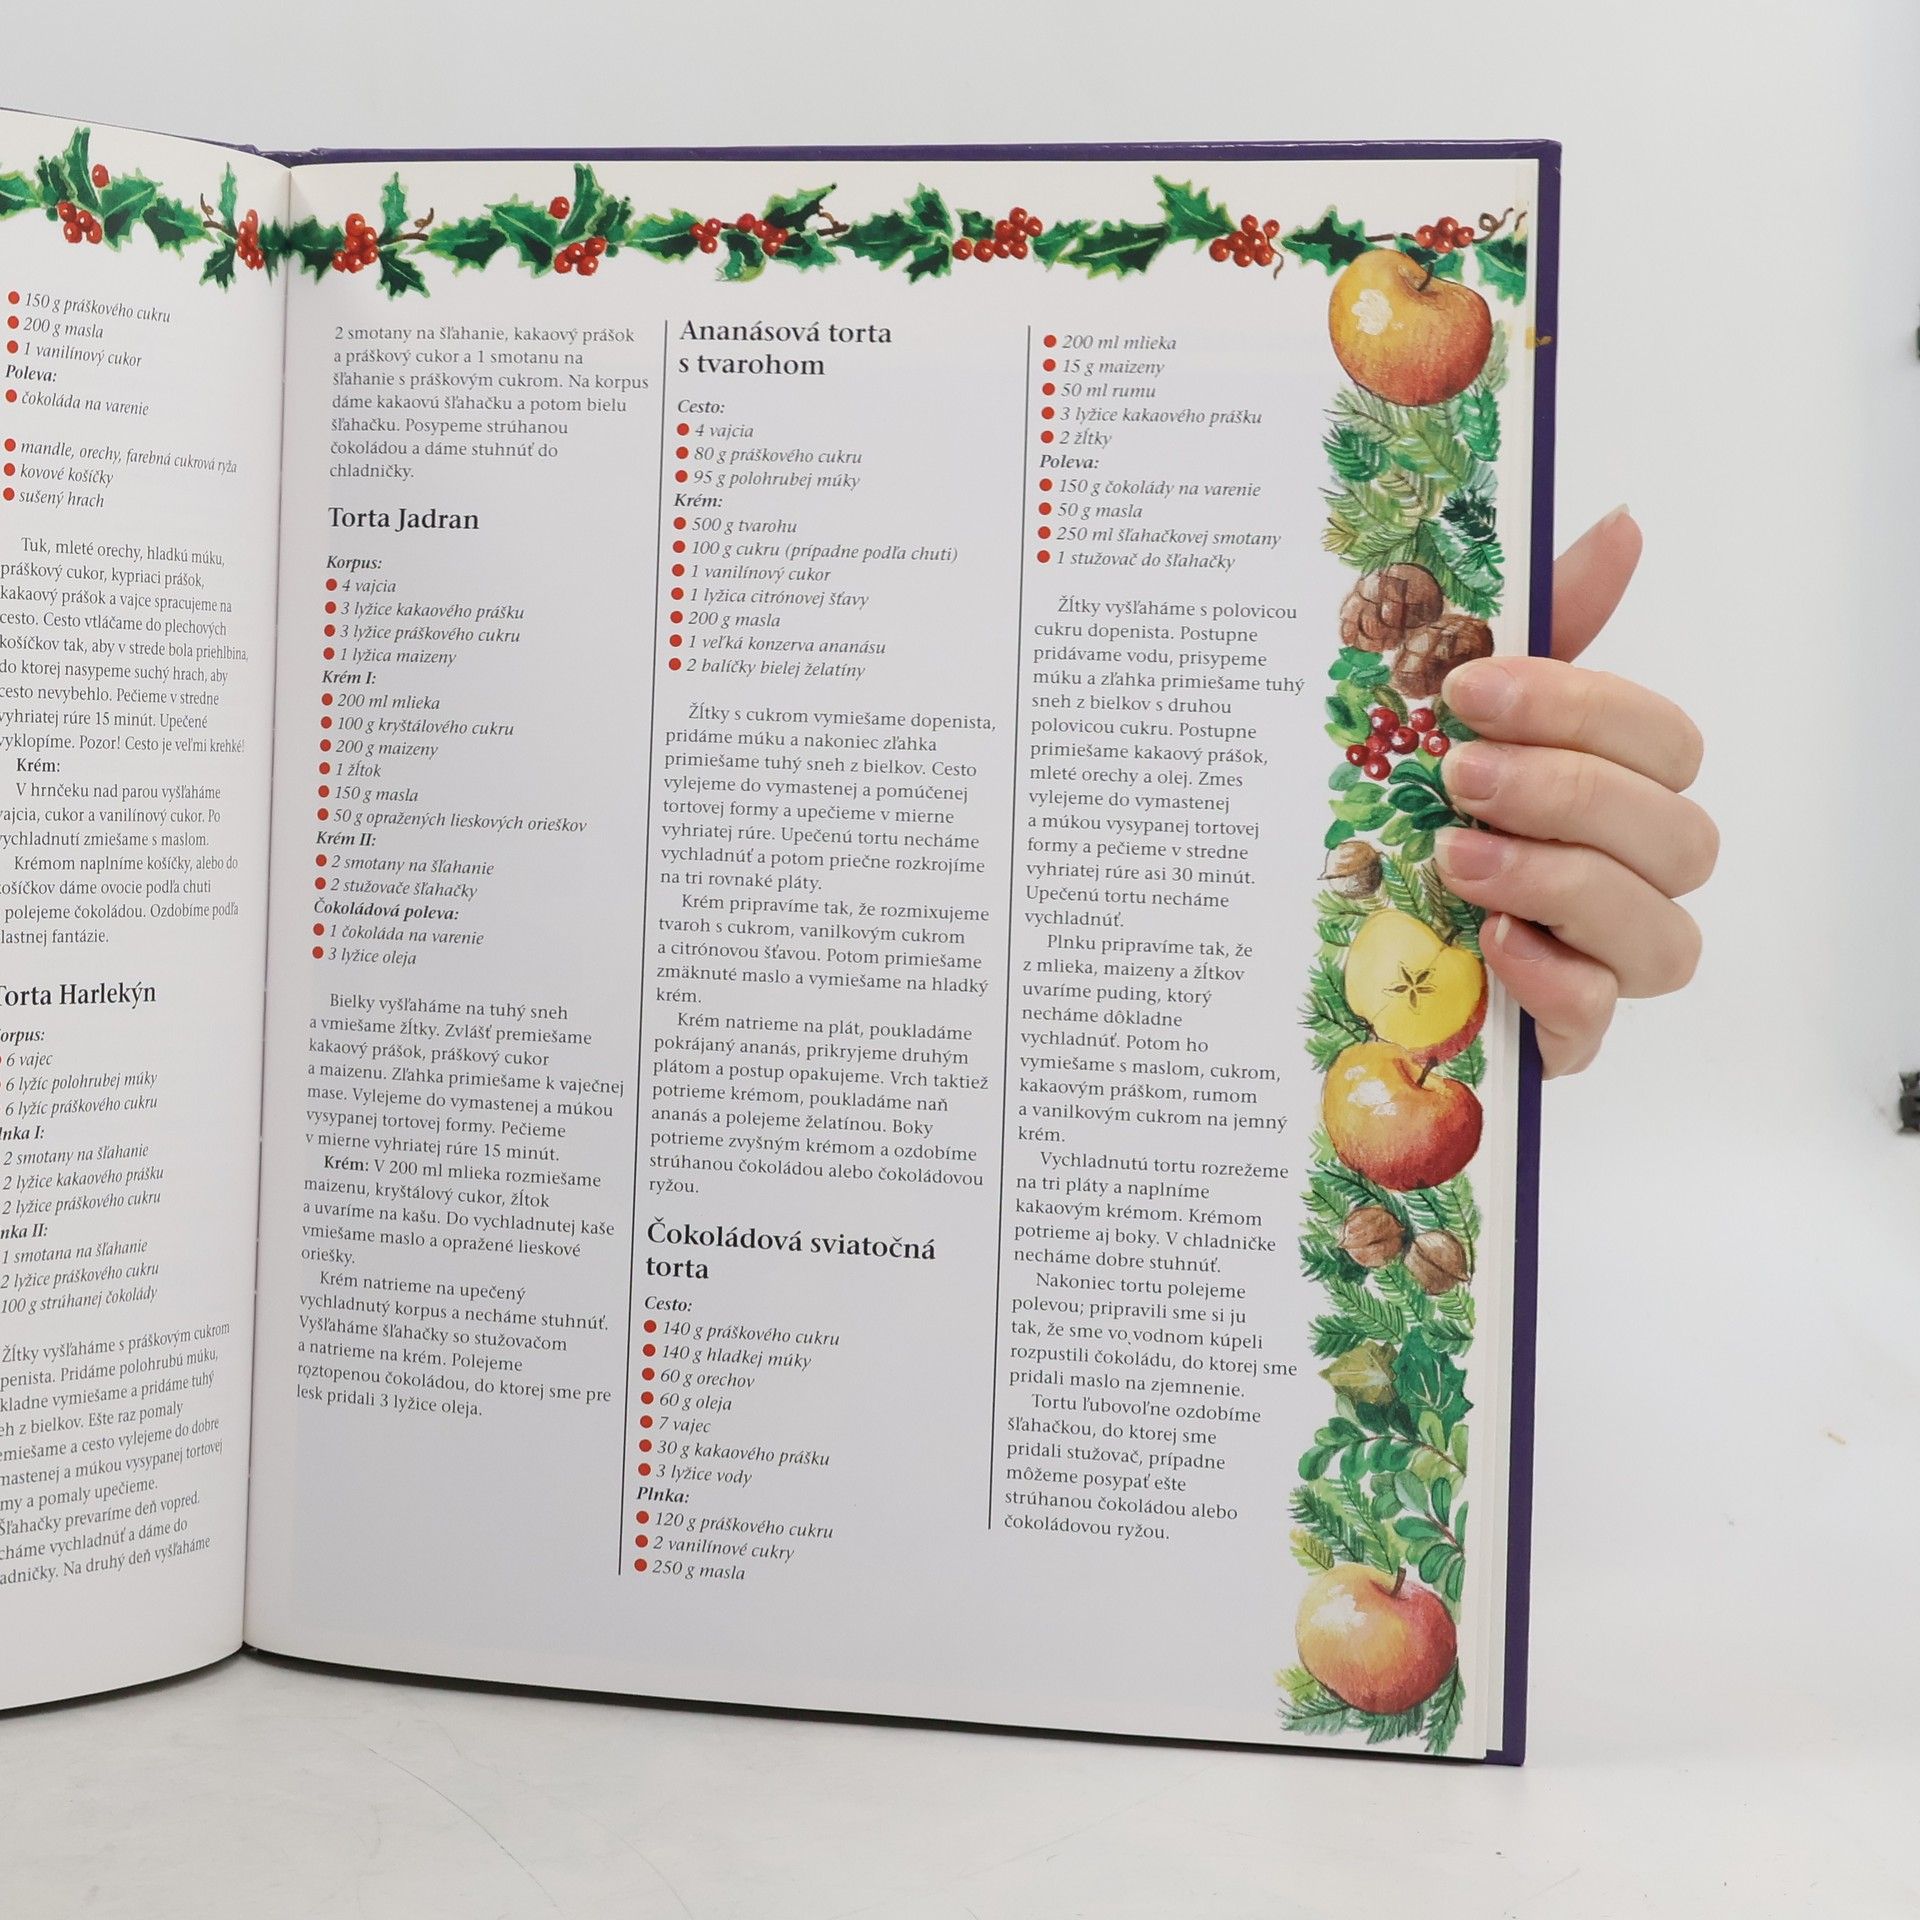 150 g práškového cukru
200 g masla
1 vanilínový cukor
Poleva:
čokoláda na varenie
mandle, orechy, farebná cukrová ryža
kovové košíčky
sušený hrach
Tuk, mleté orechy, hladkú múku,
práškový cukor, kypriaci prášok,
kakaový prášok a vajce spracujeme na
cesto. Cesto vtláčame do plechových
košíčkov tak, aby v strede bola priehlbina,
do ktorej nasypeme suchý hrach, aby
cesto nevybehlo. Pečieme v stredne
vyhriatej rúre 15 minút. Upečené
vyklopíme. Pozor! Cesto je veľmi krehké!
Krém:
V hrnčeku nad parou vyšľaháme
vajcia, cukor a vanilínový cukor. Po
vychladnutí zmiešame s maslom.
Krémom naplníme košíčky, alebo do
košíčkov dáme ovocie podľa chuti
polejeme čokoládou. Ozdobíme podľa
lastnej fantázie.
Torta Harlekýn
orpus:
6 vajec
6 lyžíc polohrubej múky
6 lyžíc práškového cukru
lnka I:
2 smotany na šľahanie
2 lyžice kakaového prášku
2 lyžice práškového cukru
nka II:
1 smotana na šľahanie
2 lyžice práškového cukru
100 g strúhanej čokolády
Žĺtky vyšľaháme s práškovým cukrom
penista. Pridáme polohrubú múku,
kladne vymiešame a pridáme tuhý
eh z bielkov. Ešte raz pomaly
emiešame a cesto vylejeme do dobre
mastenej a múkou vysypanej tortovej
my a pomaly upečieme.
Šľahačky prevaríme deň vopred.
cháme vychladnúť a dáme do
adničky. Na druhý deň vyšľaháme
2 smotany na šľahanie, kakaový prášok
a práškový cukor a 1 smotanu na
šľahanie s práškovým cukrom. Na korpus
dáme kakaovú šľahačku a potom bielu
šľahačku. Posypeme strúhanou
čokoládou a dáme stuhnúť do
chladničky.
Torta Jadran
Korpus:
4 vajcia
3 lyžice kakaového prášku
3 lyžice práškového cukru
1 lyžica maizeny
Krém I:
200 ml mlieka
100 g kryštálového cukru
200 g maizeny
1 žĺtok
150 g masla
50 g opražených lieskových orieškov
Krém II:
2 smotany na šľahanie
2 stužovače šľahačky
Čokoládová poleva:
1 čokoláda na varenie
3 lyžice oleja
Bielky vyšľaháme na tuhý sneh
a vmiešame žĺtky. Zvlášť premiešame
kakaový prášok, práškový cukor
a maizenu. Zľahka primiešame k vaječnej
mase. Vylejeme do vymastenej a múkou
vysypanej tortovej formy. Pečieme
v mierne vyhriatej rúre 15 minút.
Krém: V 200 ml mlieka rozmiešame
maizenu, kryštálový cukor, žĺtok
a uvaríme na kašu. Do vychladnutej kaše
vmiešame maslo a opražené lieskové
oriešky.
Krém natrieme na upečený
vychladnutý korpus a necháme stuhnúť.
Vyšľaháme šľahačky so stužovačom
a natrieme na krém. Polejeme
roztopenou čokoládou, do ktorej sme pre
lesk pridali 3 lyžice oleja.
Ananásová torta
s tvarohom
Cesto:
4 vajcia
80 g práškového cukru
95 g polohrubej múky
Krém:
500 g tvarohu
100 g cukru (prípadne podľa chuti)
1 vanilínový cukor
1 lyžica citrónovej šťavy
200 g masla
1 veľká konzerva ananásu
2 balíčky bielej želatíny
Žĺtky s cukrom vymiešame dopenista,
pridáme múku a nakoniec zľahka
primiešame tuhý sneh z bielkov. Cesto
vylejeme do vymastenej a pomúčenej
tortovej formy a upečieme v mierne
vyhriatej rúre. Upečenú tortu necháme
vychladnúť a potom priečne rozkrojíme
na tri rovnaké pláty.
Krém pripravíme tak, že rozmixujeme
tvaroh s cukrom, vanilkovým cukrom
a citrónovou šťavou. Potom primiešame
zmäknuté maslo a vymiešame na hladký
krém.
Krém natrieme na plát, poukladáme
pokrájaný ananás, prikryjeme druhým
plátom a postup opakujeme. Vrch taktiež
potrieme krémom, poukladáme naň
ananás a polejeme želatínou. Boky
potrieme zvyšným krémom a ozdobíme
strúhanou čokoládou alebo čokoládovou
ryžou.
Čokoládová sviatočná
torta
Cesto:
140 g práškového cukru
140 g hladkej múky
60 g orechov
60 g oleja
7 vajec
30 g kakaového prášku
3 lyžice vody
Plnka:
120 g práškového cukru
2 vanilínové cukry
250 g masla
200 ml mlieka
15 g maizeny
50 ml rumu
3 lyžice kakaového prášku
2 žĺtky
Poleva:
150 g čokolády na varenie
50 g masla
250 ml šľahačkovej smotany
1 stužovač do šľahačky
Žĺtky vyšľaháme s polovicou
cukru dopenista. Postupne
pridávame vodu, prisypeme
múku a zľahka primiešame tuhý
sneh z bielkov s druhou
polovicou cukru. Postupne
primiešame kakaový prášok,
mleté orechy a olej. Zmes
vylejeme do vymastenej
a múkou vysypanej tortovej
formy a pečieme v stredne
vyhriatej rúre asi 30 minút.
Upečenú tortu necháme
vychladnúť.
Plnku pripravíme tak, že
z mlieka, maizeny a žĺtkov
uvaríme puding, ktorý
necháme dôkladne
vychladnúť. Potom ho
vymiešame s maslom, cukrom,
kakaovým práškom, rumom
a vanilkovým cukrom na jemný
krém.
Vychladnutú tortu rozrežeme
na tri pláty a naplníme
kakaovým krémom. Krémom
potrieme aj boky. V chladničke
necháme dobre stuhnúť.
Nakoniec tortu polejeme
polevou; pripravili sme si ju
tak, že sme vo vodnom kúpeli
rozpustili čokoládu, do ktorej sme
pridali maslo na zjemnenie.
Tortu ľubovoľne ozdobíme
šľahačkou, do ktorej sme
pridali stužovač, prípadne
môžeme posypať ešte
strúhanou čokoládou alebo
čokoládovou ryžou.